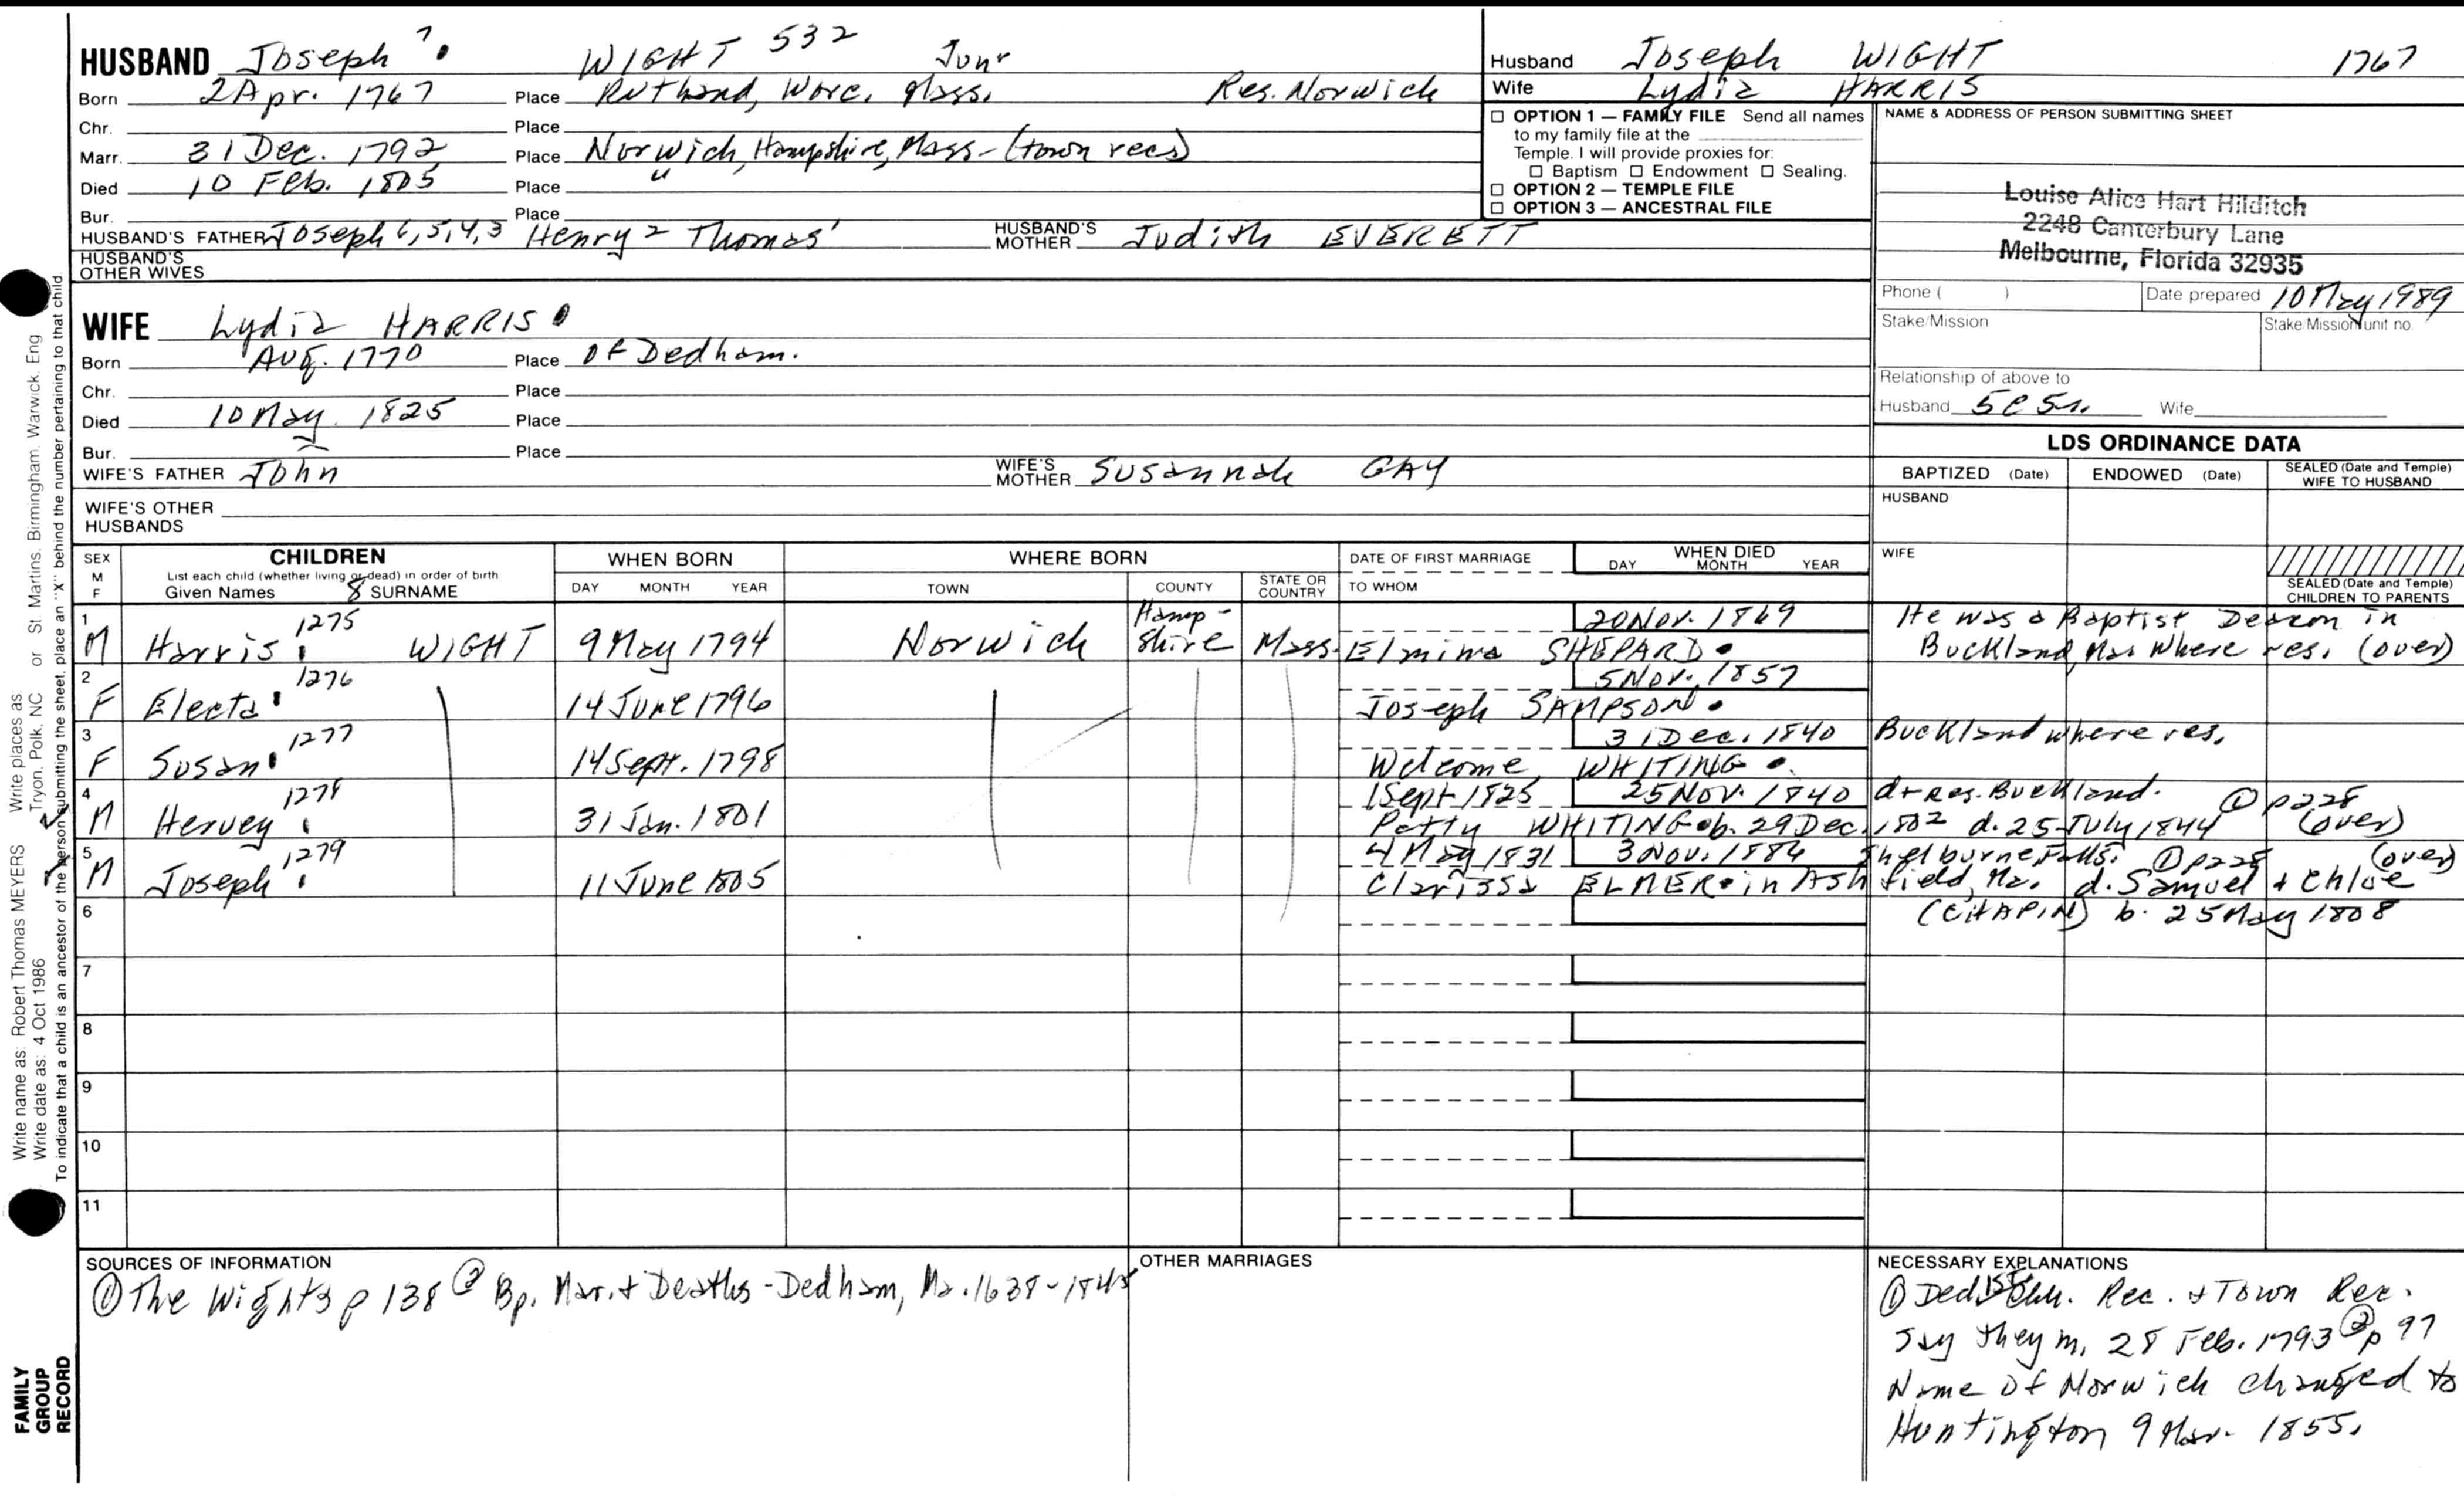 HUSBAND Joseph 7 WIGHT 532 Junr
Born 2 Apr. 1767 Place Rutland, Worc. Mass. Res. Norwich
Chr. Place
Marr. 31 Dec. 1792 Place Norwich, Hampshire, Mass - (town recs)
Died 10 Feb. 1805 Place "
Bur. Place
HUSBAND'S FATHER Joseph 6,5,4,3 Henry 2 Thomas' HUSBAND'S MOTHER Judith EVERETT
HUSBAND'S OTHER WIVES
WIFE Lydia HARRIS
Born Aug. 1770 Place Of Dedham.
Chr. Place
Died 10 May 1825 Place
Bur. Place
WIFE'S FATHER John WIFE'S MOTHER Susannah GAY
WIFE'S OTHER HUSBANDS
Husband Joseph WIGHT 1767
Wife Lydia HARRIS
☐ OPTION 1 — FAMILY FILE Send all names
to my family file at the
Temple. I will provide proxies for:
☐ Baptism ☐ Endowment ☐ Sealing.
☐ OPTION 2 — TEMPLE FILE
☐ OPTION 3 — ANCESTRAL FILE
NAME & ADDRESS OF PERSON SUBMITTING SHEET
Louise Alice Hart Hilditch
2248 Canterbury Lane
Melbourne, Florida 32935
Phone ( ) Date prepared 10 May 1989
Stake/Mission Stake/Mission unit no.
Relationship of above to
Husband 5C5r. Wife
LDS ORDINANCE DATA
BAPTIZED (Date) ENDOWED (Date) SEALED (Date and Temple) WIFE TO HUSBAND
HUSBAND
WIFE
SEALED (Date and Temple) CHILDREN TO PARENTS
SEX M F
CHILDREN
List each child (whether living or dead) in order of birth
Given Names 8 SURNAME
WHEN BORN
DAY MONTH YEAR
WHERE BORN
TOWN COUNTY STATE OR COUNTRY
DATE OF FIRST MARRIAGE
TO WHOM
WHEN DIED
DAY MONTH YEAR
1 1275 Hamp- 20 Nov. 1869 He was a Baptist Deacon in
M Harris WIGHT 9 May 1794 Norwich shire Mass. Elmina SHEPARD Buckland, Mas where res. (over)
2 1276 5 Nov. 1857
F Electa 14 June 1796 Joseph SAMPSON
3 1277 31 Dec. 1840 Buckland where res.
F Susan 14 Sept. 1798 Welcome WHITING
4 1278 1 Sept 1825 25 Nov. 1840 d + res. Buckland. ① p228
M Hervey 31 Jan. 1801 Patty WHITING b. 29 Dec. 1802 d. 25 July 1844 (over)
5 1279 4 May 1831 3 Nov. 1886 Shelburne Falls. ① p228 (over)
M Joseph 11 June 1805 Clarissa ELMER in Ashfield, Ma. d. Samuel + Chloe
6 (CHAPIN) b. 25 May 1808
7
8
9
10
11
SOURCES OF INFORMATION
① The Wights p 138 ② Bp. Mar. + Deaths - Dedham, Ma. 1638-1845
OTHER MARRIAGES
NECESSARY EXPLANATIONS
① Ded. 1st Chh. Rec. + Town Rec.
say they m. 28 Feb. 1793 ② p 97
Name of Norwich changed to
Huntington 9 Mar. 1855.
Write name as: Robert Thomas MEYERS Write places as Tryon, Polk, NC or St Martins, Birmingham, Warwick, Eng
Write date as: 4 Oct 1986
To indicate that a child is an ancestor of the person submitting the sheet, place an "X" behind the number pertaining to that child
FAMILY
GROUP
RECORD